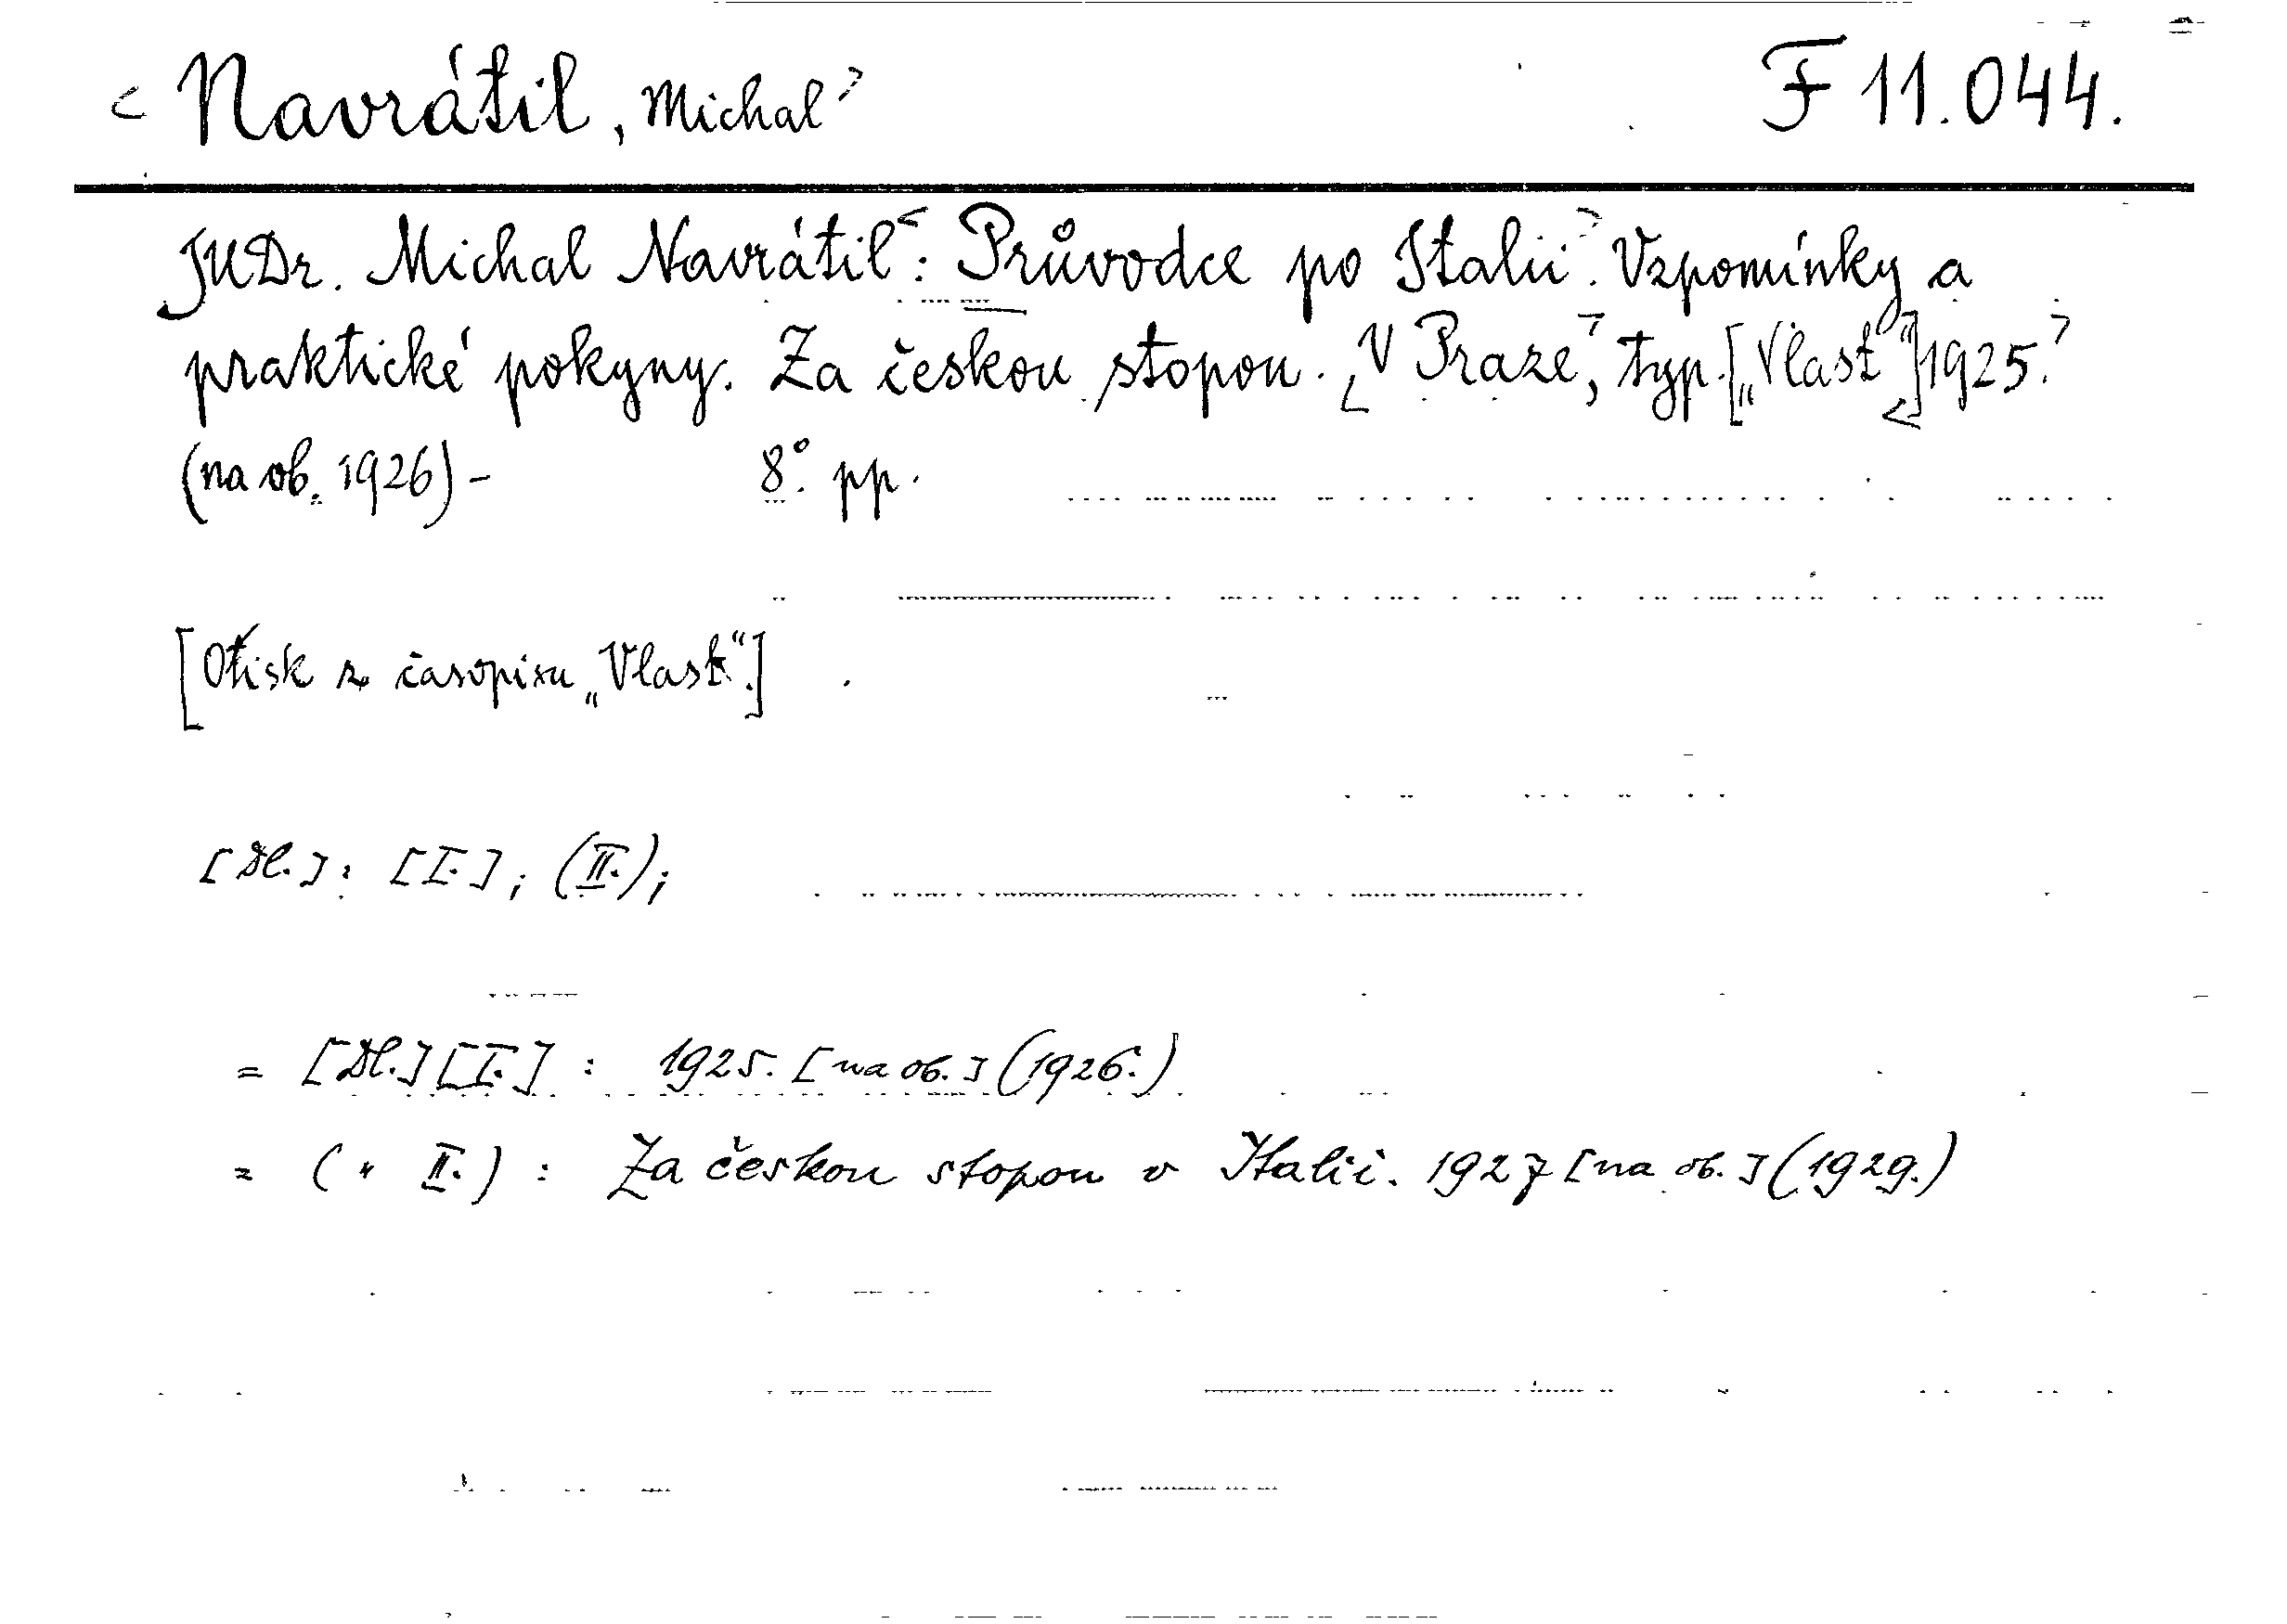 < Navrátil, Michal > F 11.044.
JUDr. Michal Navrátil <: Průvodce po Italii >. Vzpomínky a
praktické pokyny. Za českou stopou. [V Praze], typ. [„Vlast“] < 1925. >
(na ob. 1926) - 8°. pp.
[Otisk z časopisu „Vlast“.]
[Dl.]: [I.]; (II.);
= [Dl.] [I.] : 1925. [na ob.] (1926.)
= ( " II.) : Za českou stopou v Italii. 1927 [na ob.] (1929.)